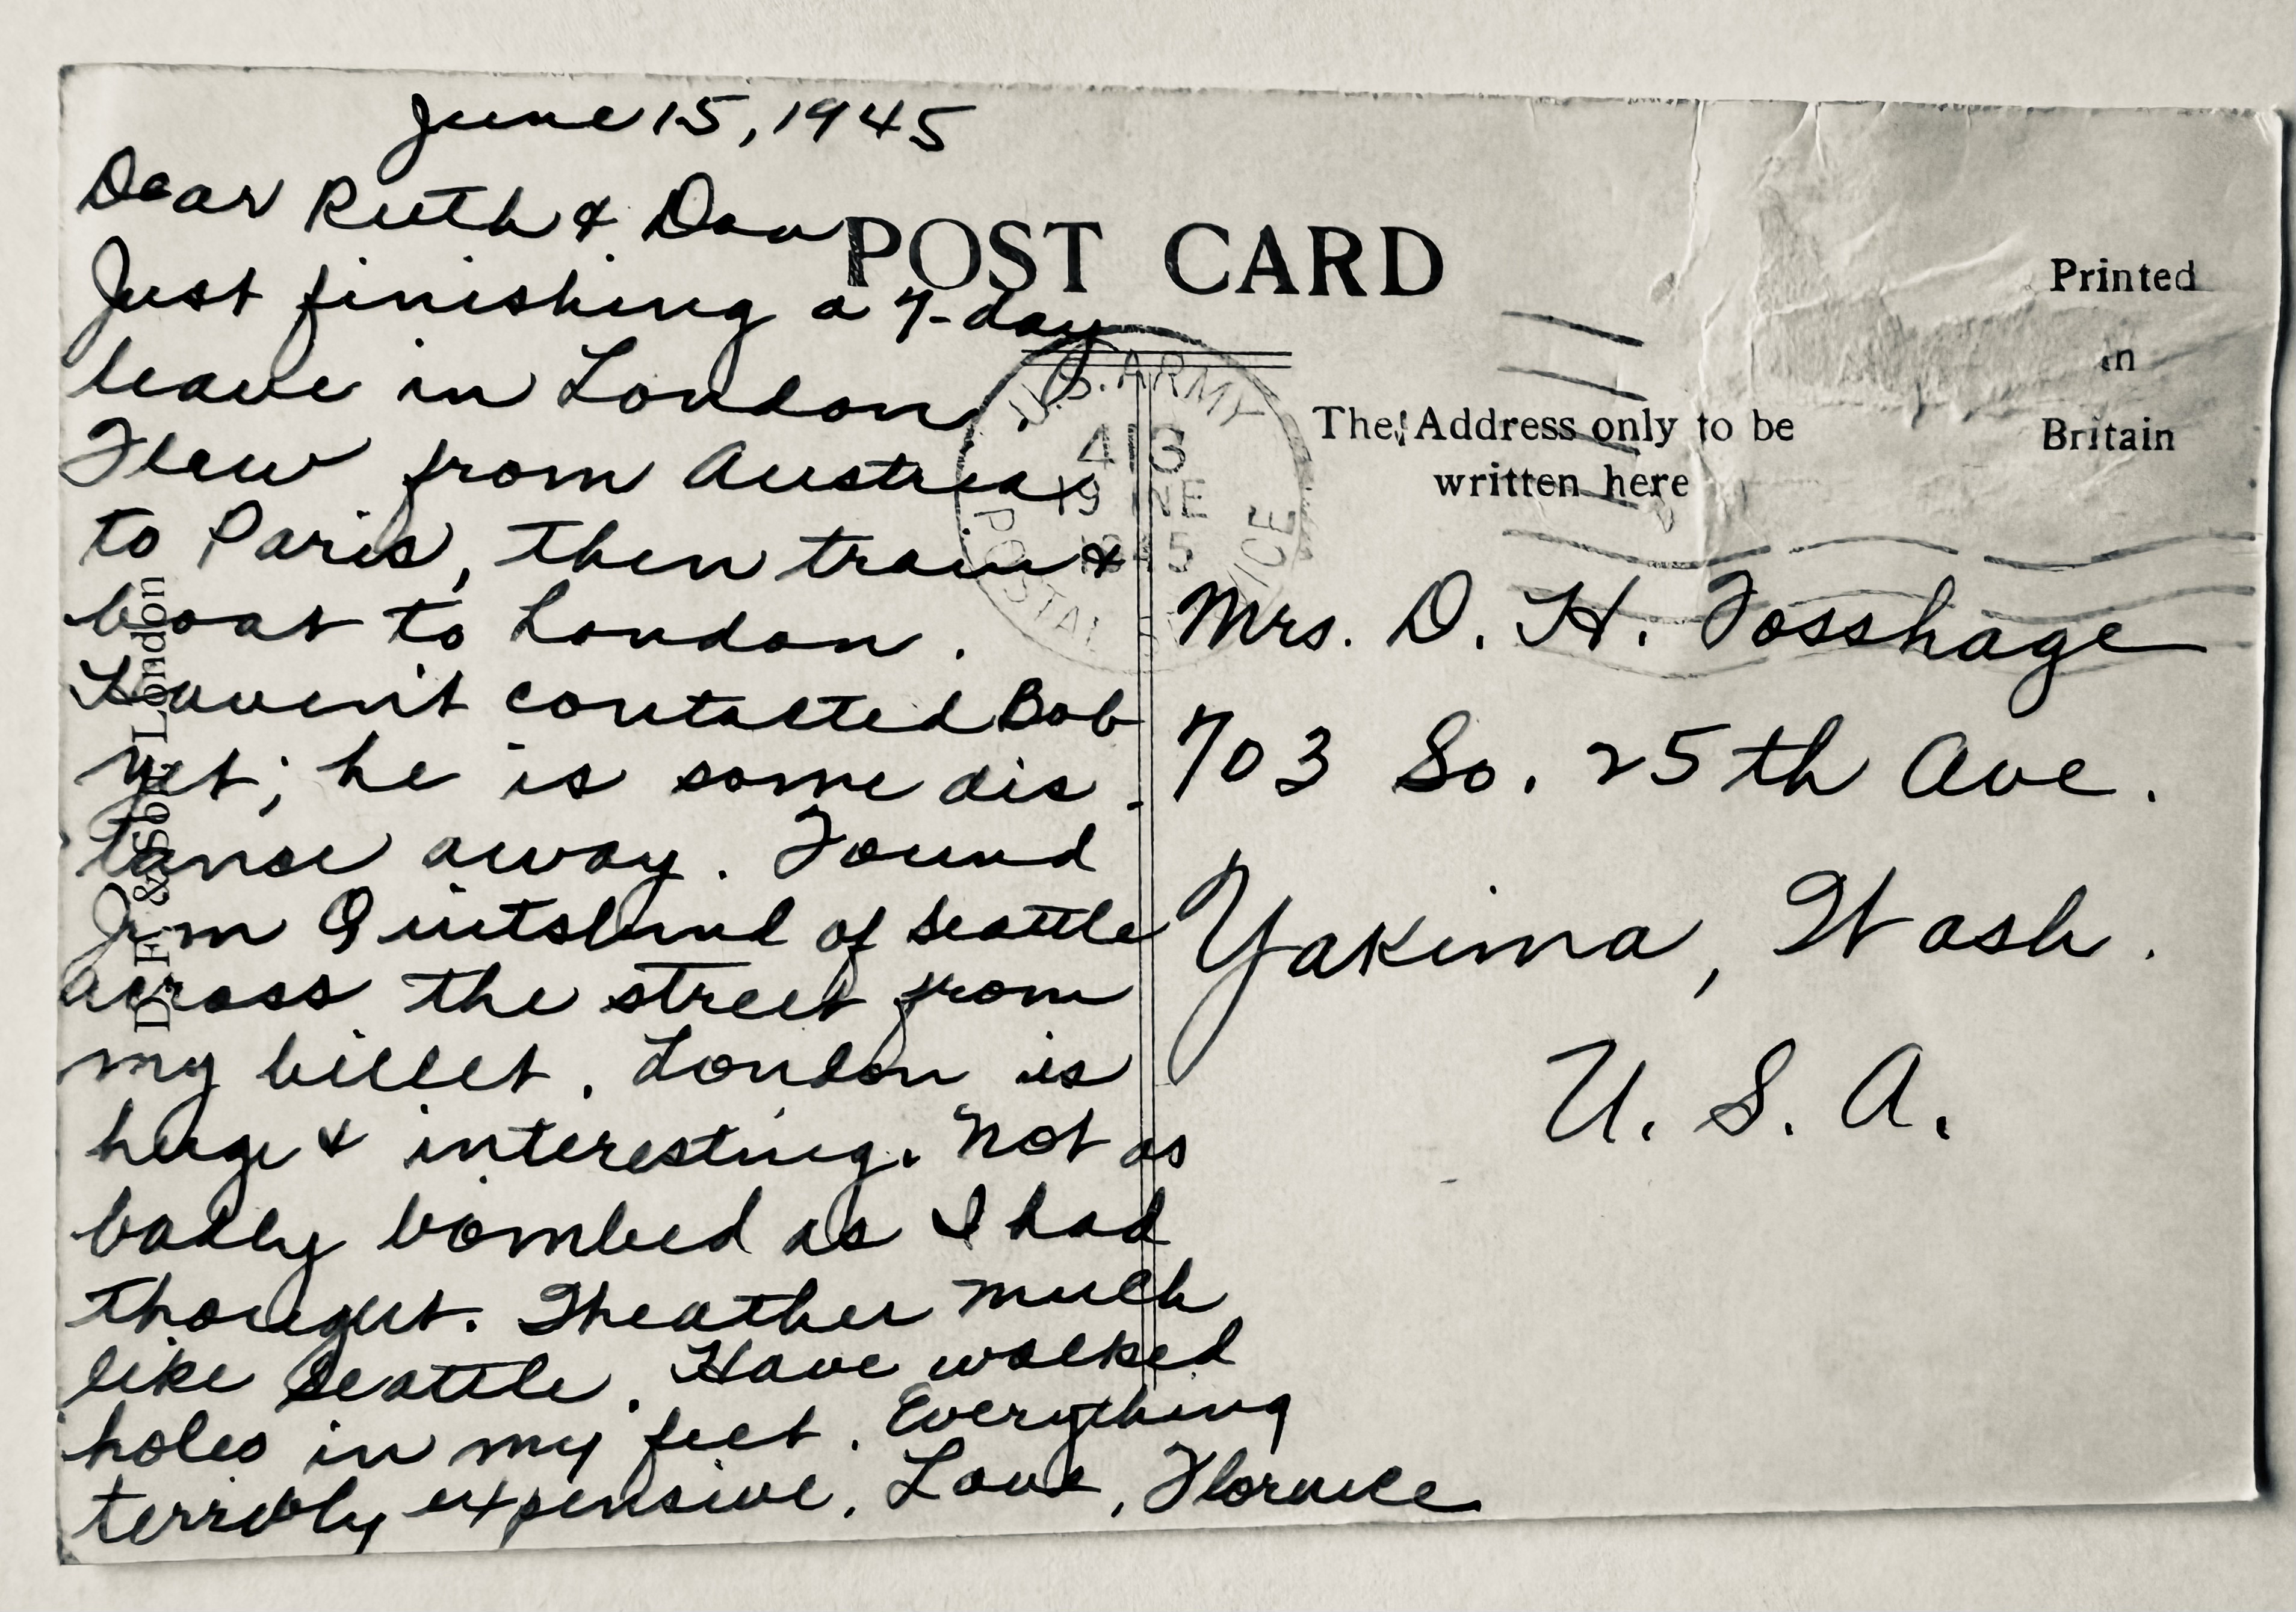 June 15, 1945
Dear Ruth & Dan
Just finishing a 7-day
leave in London.
Flew from Austria
to Paris, then train &
boat to London.
Haven't contacted Bob
yet; he is some dis-
tance away. Found
Jim of Seattle
across the street from
my billet. London is
huge & interesting. Not as
badly bombed as I had
thought. Weather much
like Seattle. Have walked
holes in my feet. Everything
terribly expensive. Love, Florence
POST CARD
Printed
in
Britain
The Address only to be
written here
U.S. ARMY
413
19 NE
1945
POSTAL VICE
Mrs. D. H. Fosshage
703 So. 25th Ave.
Yakima, Wash.
U. S. A.
London